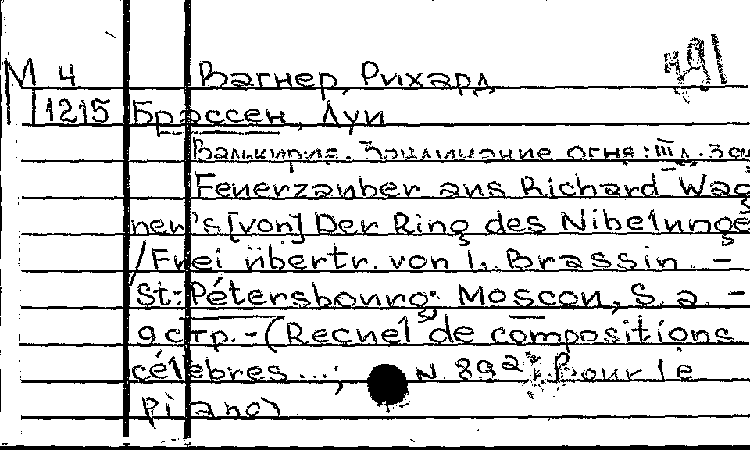 М 4 Вагнер, Рихард 491
1215 Брассен, Луи
Валькирия. Заклинание огня
Feuerzauber aus Richard Wag
ner's [von] Der Ring des Nibelunge
/Frei übertr. von L. Brassin. –
St.-Pétersbourg; Moscou, S. a. –
9 стр. – (Recueil de compositions
célèbres...; N 892: Pour le
piano)